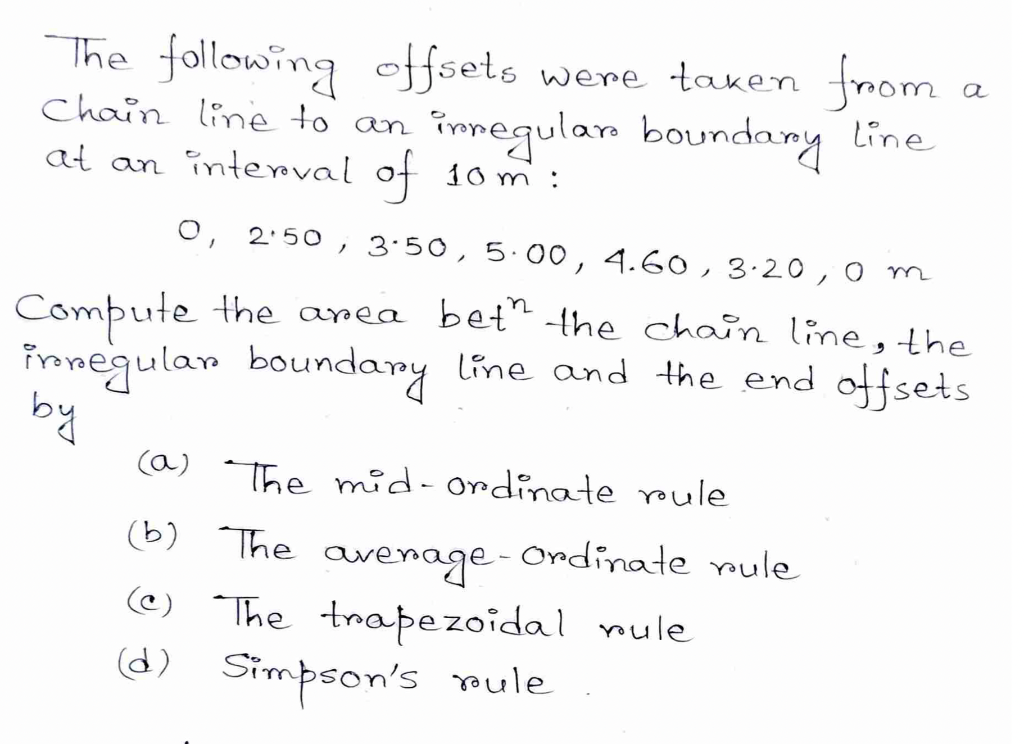 The following offsets were taken from a
Chain line to an irregular boundary line
at an interval of 10 m :
0, 2.50, 3.50, 5.00, 4.60, 3.20, 0 m
Compute the area betⁿ the chain line, the
irregular boundary line and the end offsets
by
(a) The mid-ordinate rule
(b) The average-ordinate rule
(c) The trapezoidal rule
(d) Simpson's rule.